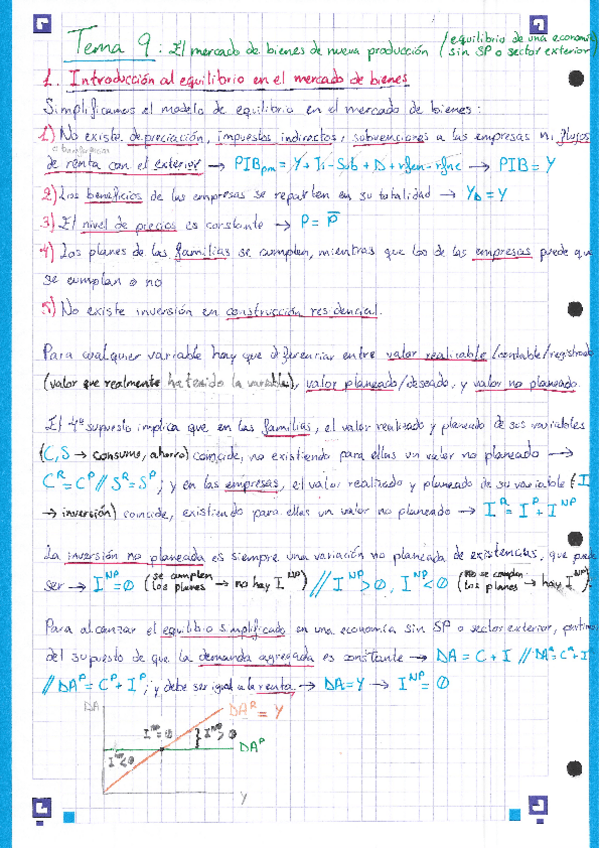 Tema 9: El mercado de bienes de nueva producción (equilibrio de una economía
sin SP o sector exterior)
1. Introducción al equilibrio en el mercado de bienes
Simplificamos el modelo de equilibrio en el mercado de bienes:
1) No existe depreciación, impuestos indirectos, subvenciones a las empresas ni flujos
de renta con el exterior → PIBpm = Y + Ti - Sub + D + rfen - rfne → PIB = Y
2) Los beneficios de las empresas se reparten en su totalidad → YD = Y
3) El nivel de precios es constante → P = P̄
4) Los planes de las familias se cumplen, mientras que los de las empresas puede que
se cumplan o no
5) No existe inversión en construcción residencial.
Para cualquier variable hay que diferenciar entre valor realizable/contable/registrado
(valor que realmente ha tenido la variable), valor planeado/deseado, y valor no planeado.
El 4º supuesto implica que en las familias, el valor realizado y planeado de sus variables
(C,S → consumo, ahorro) coincide, no existiendo para ellas un valor no planeado →
Cᴿ = Cᴾ // Sᴿ = Sᴾ; y en las empresas, el valor realizado y planeado de su variable (I
→ inversión) coincide, existiendo para ellas un valor no planeado → Iᴿ = Iᴾ + Iᴺᴾ
La inversión no planeada es siempre una variación no planeada de existencias, que puede
ser → Iᴺᴾ = 0 (se cumplen los planes → no hay Iᴺᴾ) // Iᴺᴾ > 0, Iᴺᴾ < 0 (no se cumplen los planes → hay Iᴺᴾ).
Para alcanzar el equilibrio simplificado en una economía sin SP o sector exterior, partimos
del supuesto de que la demanda agregada es constante → DA = C + I // DAᴿ = Cᴿ + Iᴿ
// DAᴾ = Cᴾ + Iᴾ; y debe ser igual a la renta → DA = Y → Iᴺᴾ = 0
DA
DAᴿ = Y
Iᴺᴾ = 0
Iᴺᴾ > 0
DAᴾ
Iᴺᴾ < 0
Y